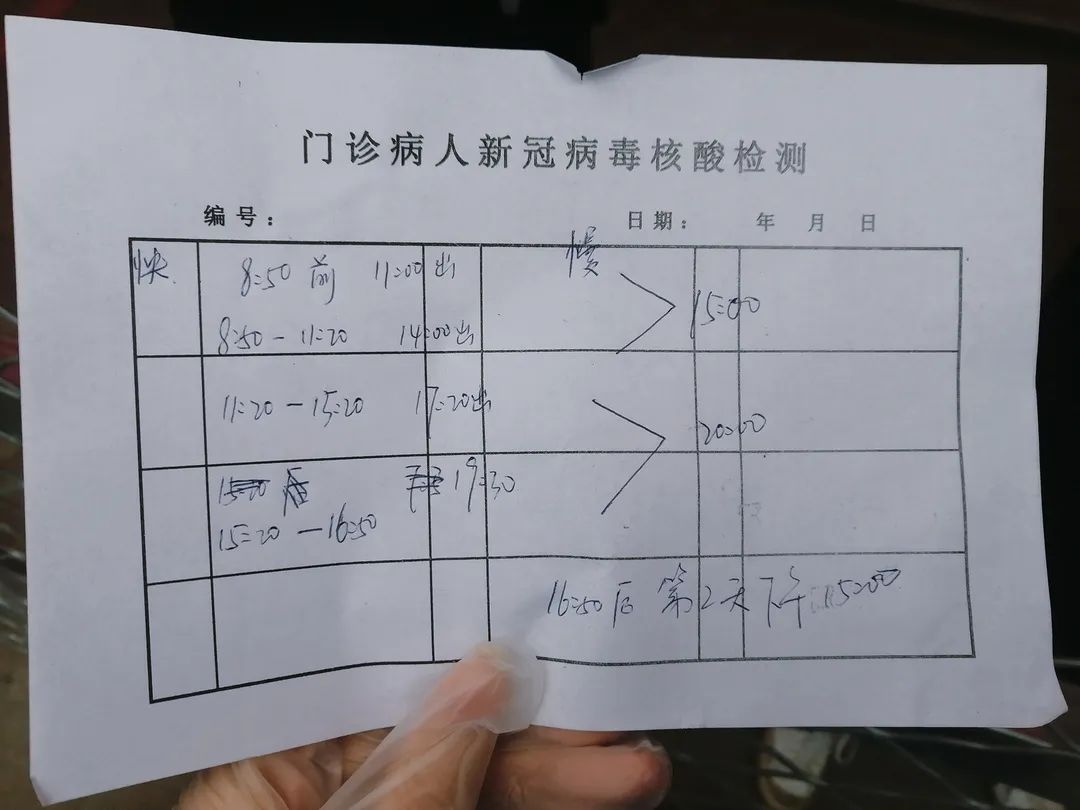 门诊病人新冠病毒核酸检测
编号： 日期： 年 月 日
快 慢
8:50前 11:00出
8:50-11:20 14:00出 15:00
11:20-15:20 17:20出 20:00
后 19:30
15:20-16:50
16:50后 第2天下午 15:00